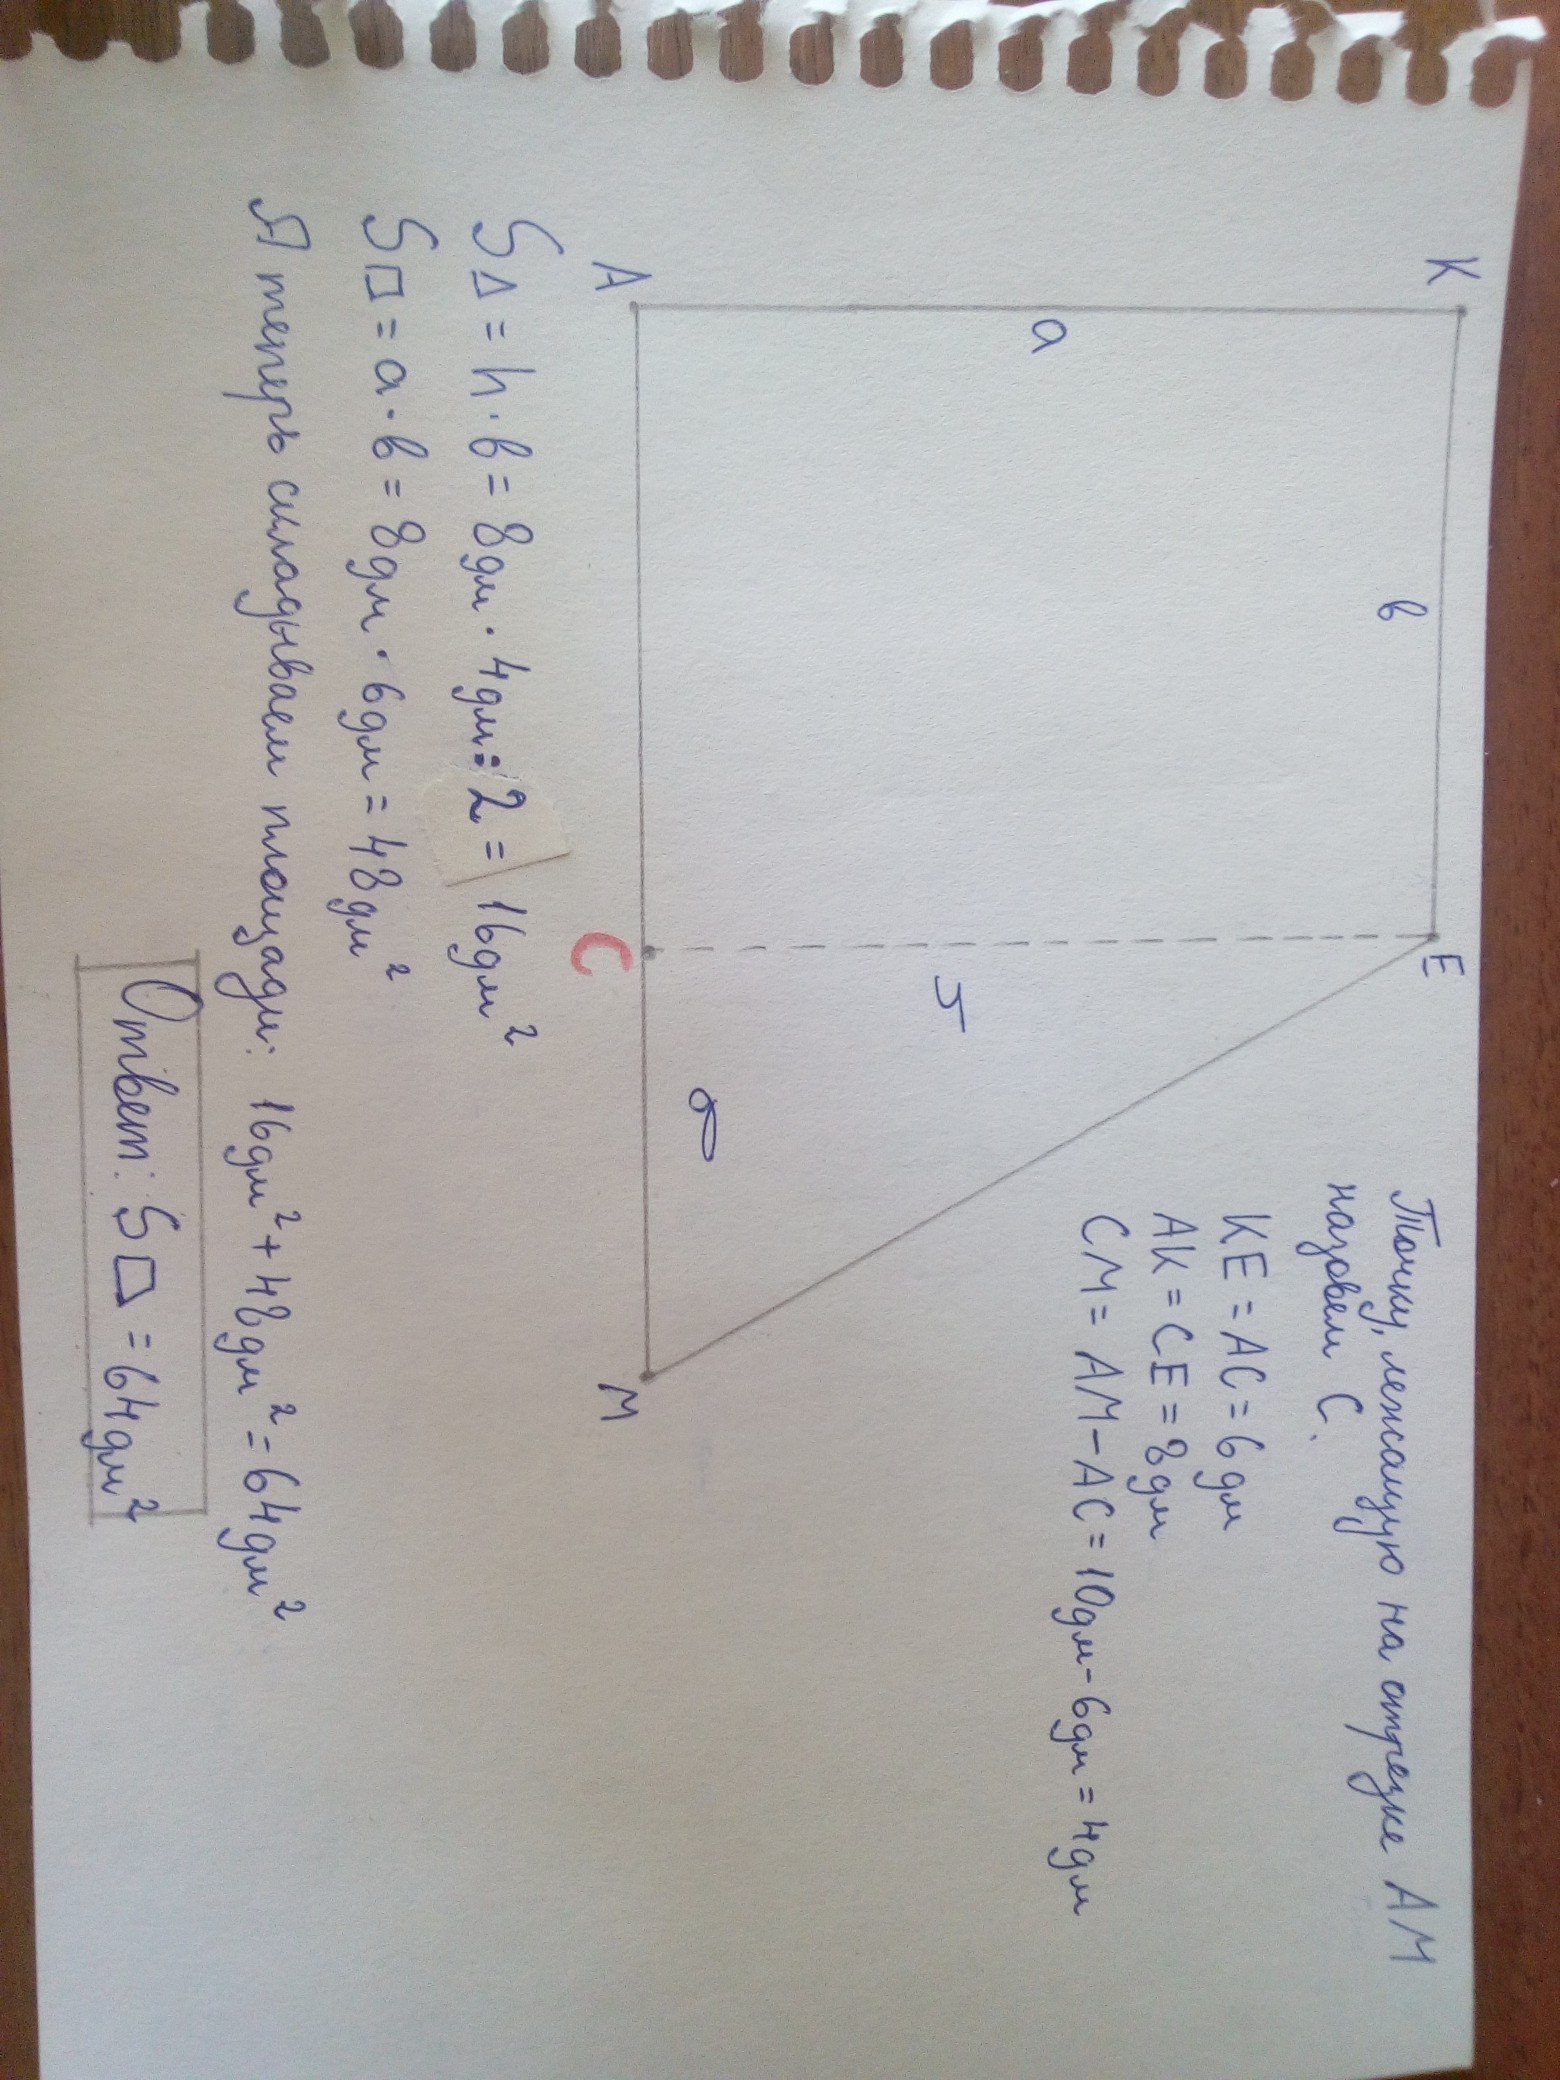 Точку, лежащую на отрезке АМ
назовём С.
КЕ = АС = 6 дм
АК = СЕ = 8 дм
СМ = АМ - АС = 10дм - 6дм = 4дм
К
в
Е
а
h
в
А
С
М
S△ = h · в = 8дм · 4дм : 2 = 16дм²
S□ = а · в = 8дм · 6дм = 48дм²
А теперь складываем площади: 16дм² + 48дм² = 64дм²
Ответ: S□ = 64дм²